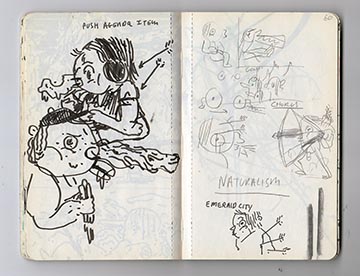 PUSH AGENDA ITEM
60
CHORUS
NATURALISM
EMERALD CITY